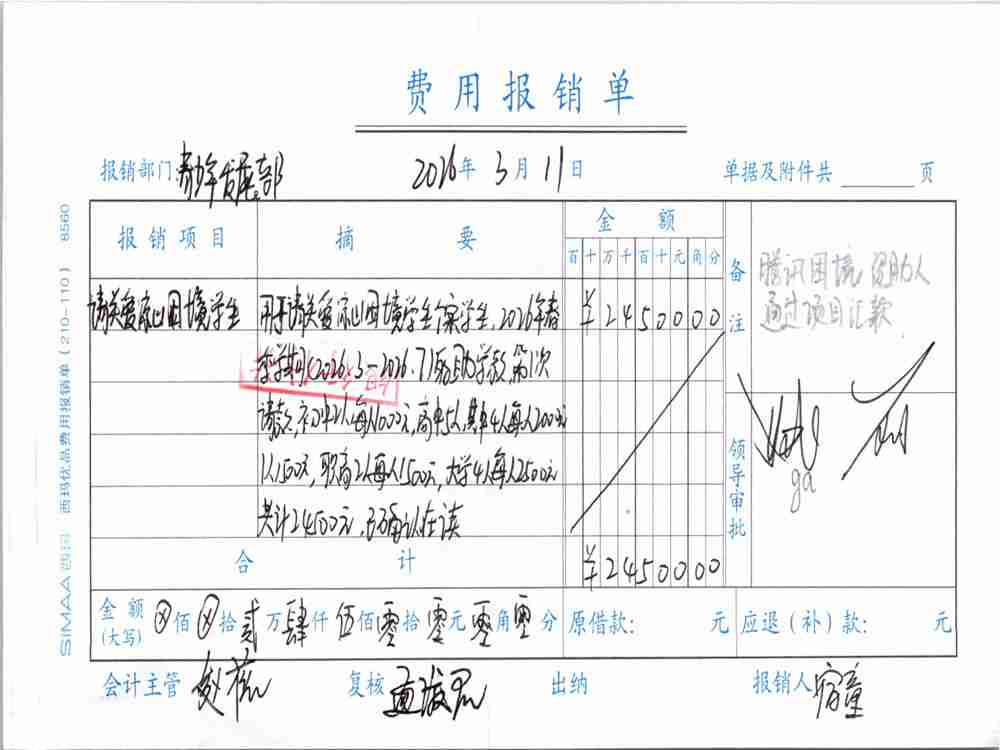 费用报销单
报销部门: 青少年发展部 2026年3月11日 单据及附件共 页
报销项目 摘要 金额 备注
百十万千百十元角分
请关爱 困境学生 用于请关爱 困境学生个案学生,2026年春 ¥2450000
季学期(2026.3-2026.7)资助学款,第1次
请款,初中2人每人1000元,高中5人,其中4人每人2000元
1人1500元,职高2人每人1500元,大学4人每人2500元
共计24500元,已确认在读
腾讯困境 资助人
通过项目汇款
领导审批
合计 ¥2450000
金额(大写) ⊗佰⊗拾贰万肆仟伍佰零拾零元零角零分 原借款: 元 应退(补)款: 元
会计主管 复核 出纳 报销人 宿童
SIMAA 西玛 西玛优品费用报销单(210-110) 8560